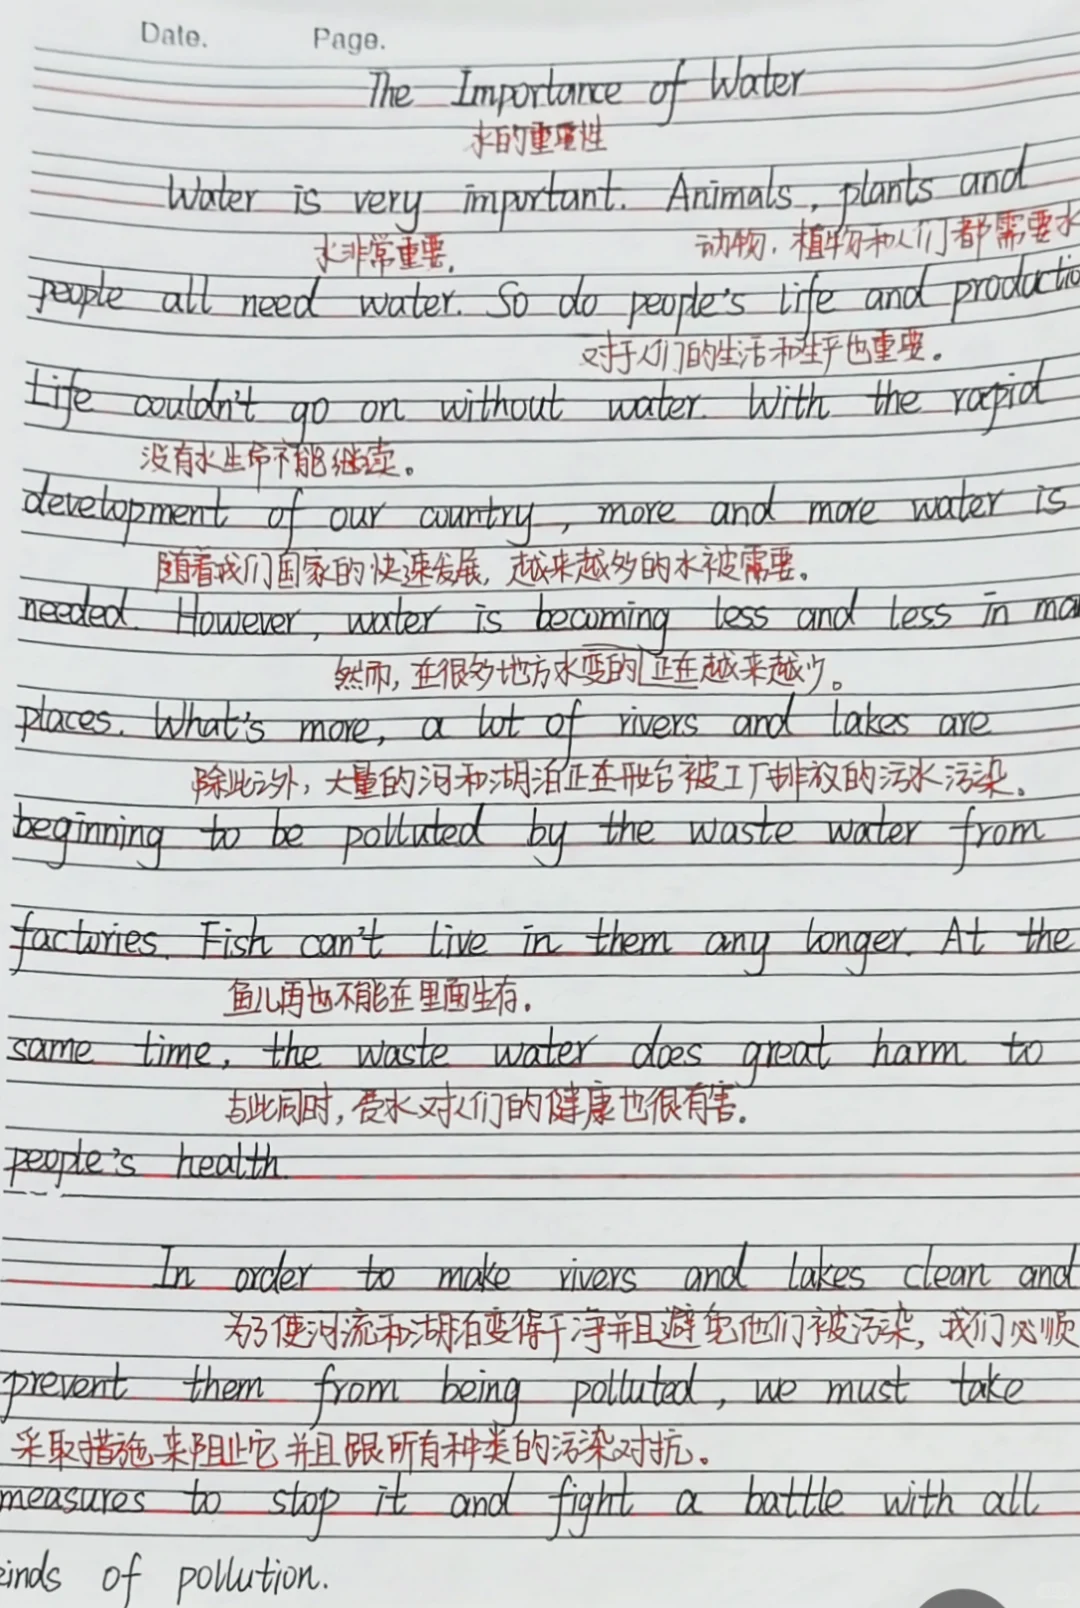 Date. Page.
The Importance of Water
水的重要性
Water is very important. Animals, plants and
水非常重要。 动物，植物和人们都需要水
people all need water. So do people's life and productio
对于人们的生活和生产也重要。
Life couldn't go on without water. With the rapid
没有水生命不能继续。
development of our country, more and more water is
随着我们国家的快速发展，越来越多的水被需要。
needed. However, water is becoming less and less in ma
然而，在很多地方水变的正在越来越少。
places. What's more, a lot of rivers and lakes are
除此之外，大量的河和湖泊正在开始被工厂排放的污水污染。
beginning to be polluted by the waste water from
factories. Fish can't live in them any longer. At the
鱼儿再也不能在里面生存。
same time, the waste water does great harm to
与此同时，废水对人们的健康也很有害。
people's health.
In order to make rivers and lakes clean and
为了使河流和湖泊变得干净并且避免他们被污染，我们必须
prevent them from being polluted, we must take
采取措施来阻止它并且跟所有种类的污染对抗。
measures to stop it and fight a battle with all
inds of pollution.